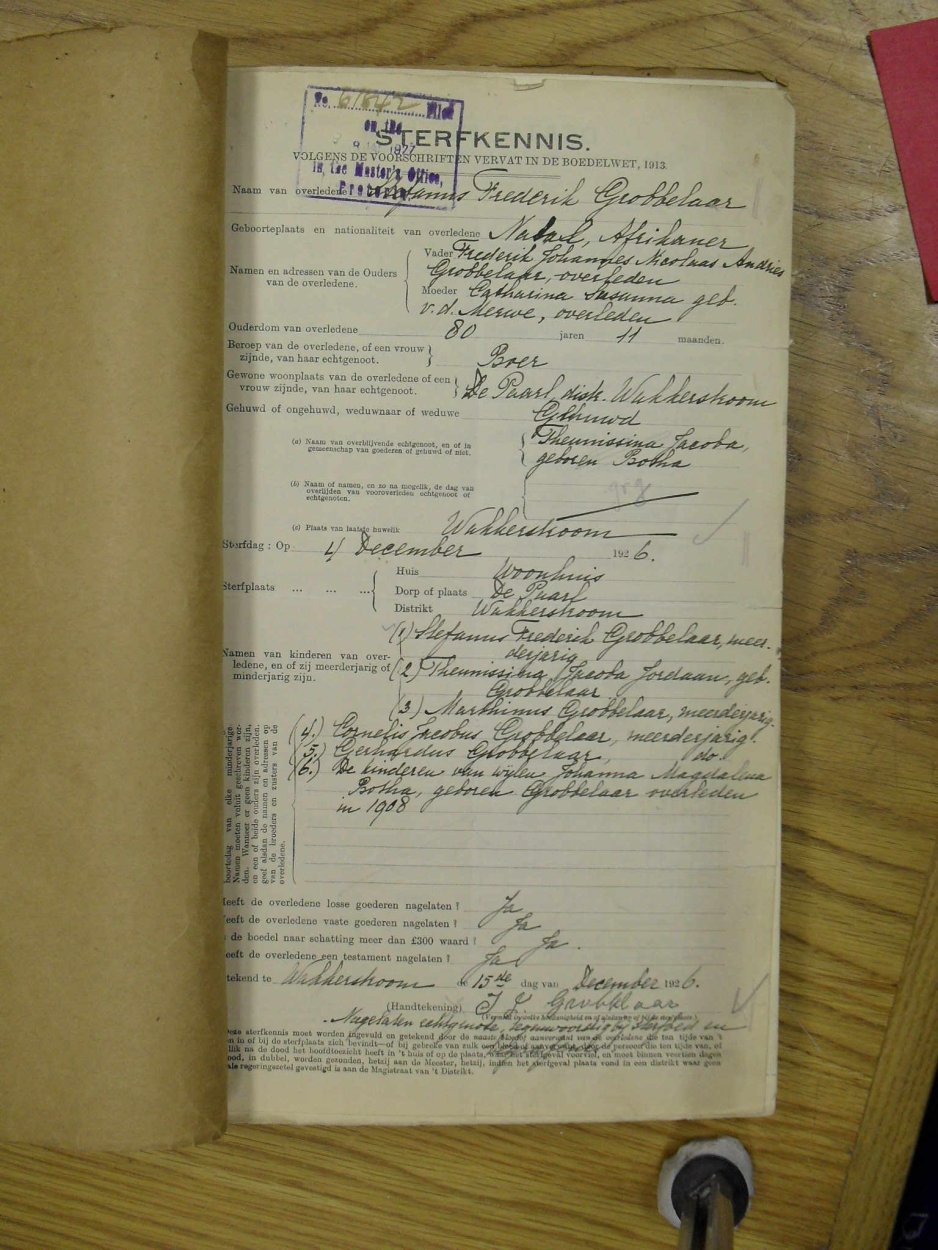 No. 61842 Filed
on the
1927
In the Master's Office,
Pretoria
STERFKENNIS.
VOLGENS DE VOORSCHRIFTEN VERVAT IN DE BOEDELWET, 1913.
Naam van overledene Stefanus Frederik Grobbelaar
Geboorteplaats en nationaliteit van overledene Natal, Afrikaner
Namen en adressen van de Ouders van de overledene.
Vader Frederik Johannes Nicolaas Andries
Grobbelaar, overleden
Moeder Catharina Susanna geb.
v.d. Merwe, overleden
Ouderdom van overledene 80 jaren 11 maanden.
Beroep van de overledene, of een vrouw
zijnde, van haar echtgenoot. Boer
Gewone woonplaats van de overledene of een
vrouw zijnde, van haar echtgenoot. De Paarl, disk. Wakkerstroom
Gehuwd of ongehuwd, weduwnaar of weduwe Gehuwd
(a) Naam van overblijvende echtgenoot, en of in
gemeenschap van goederen of gehuwd of niet.
Theunissina Jacoba,
geboren Botha
(b) Naam of namen, en zo na mogelik, de dag van
overlijden van vooroverleden echtgenoot of
echtgenoten.
(c) Plaats van laatste huwelik Wakkerstroom
Sterfdag : Op 4 December 1926.
Sterfplaats ... ... ...
Huis Woonhuis
Dorp of plaats De Paarl
Distrikt Wakkerstroom
Namen van kinderen van over-
ledene, en of zij meerderjarig of
minderjarig zijn.
(1) Stefanus Frederik Grobbelaar, meer-
derjarig
(2) Theunissina Jacoba Jordaan, geb.
Grobbelaar
(3.) Marthinus Grobbelaar, meerderjarig.
(4.) Cornelis Jacobus Grobbelaar, meerderjarig.
(5.) Gerhardus Grobbelaar, do.
(6.) De kinderen van wijlen Johanna Magdalena
Botha, geboren Grobbelaar overleden
in 1908
boortedag van elke minderjarige
Namen moeten voluit geschreven wor-
den. Wanneer er geen kinderen zijn,
en een of beide ouders zijn overleden,
geef alsdan de namen en adressen op
van de broeders en zusters van de
overledene.
Heeft de overledene losse goederen nagelaten ? Ja
Heeft de overledene vaste goederen nagelaten ? Ja
Is de boedel naar schatting meer dan £300 waard ? Ja.
Heeft de overledene een testament nagelaten ? Ja
tekend te Wakkerstroom de 15de dag van December 1926.
(Handtekening) T J Grobbelaar
Nagelaten echtgenote, tegenwoordig by sterfbed en
Deze sterfkennis moet worden ingevuld en getekend door de
lik na de dood het hoofdtoezicht heeft in 't huis of op de plaats, waar het sterfgeval voorviel, en moet binnen veertien dagen
dood, in dubbel, worden gezonden, hetzij aan de Meester, hetzij, indien het sterfgeval plaats vond in een distrikt waar geen
zulke regeringszetel gevestigd is aan de Magistraat van 't Distrikt.